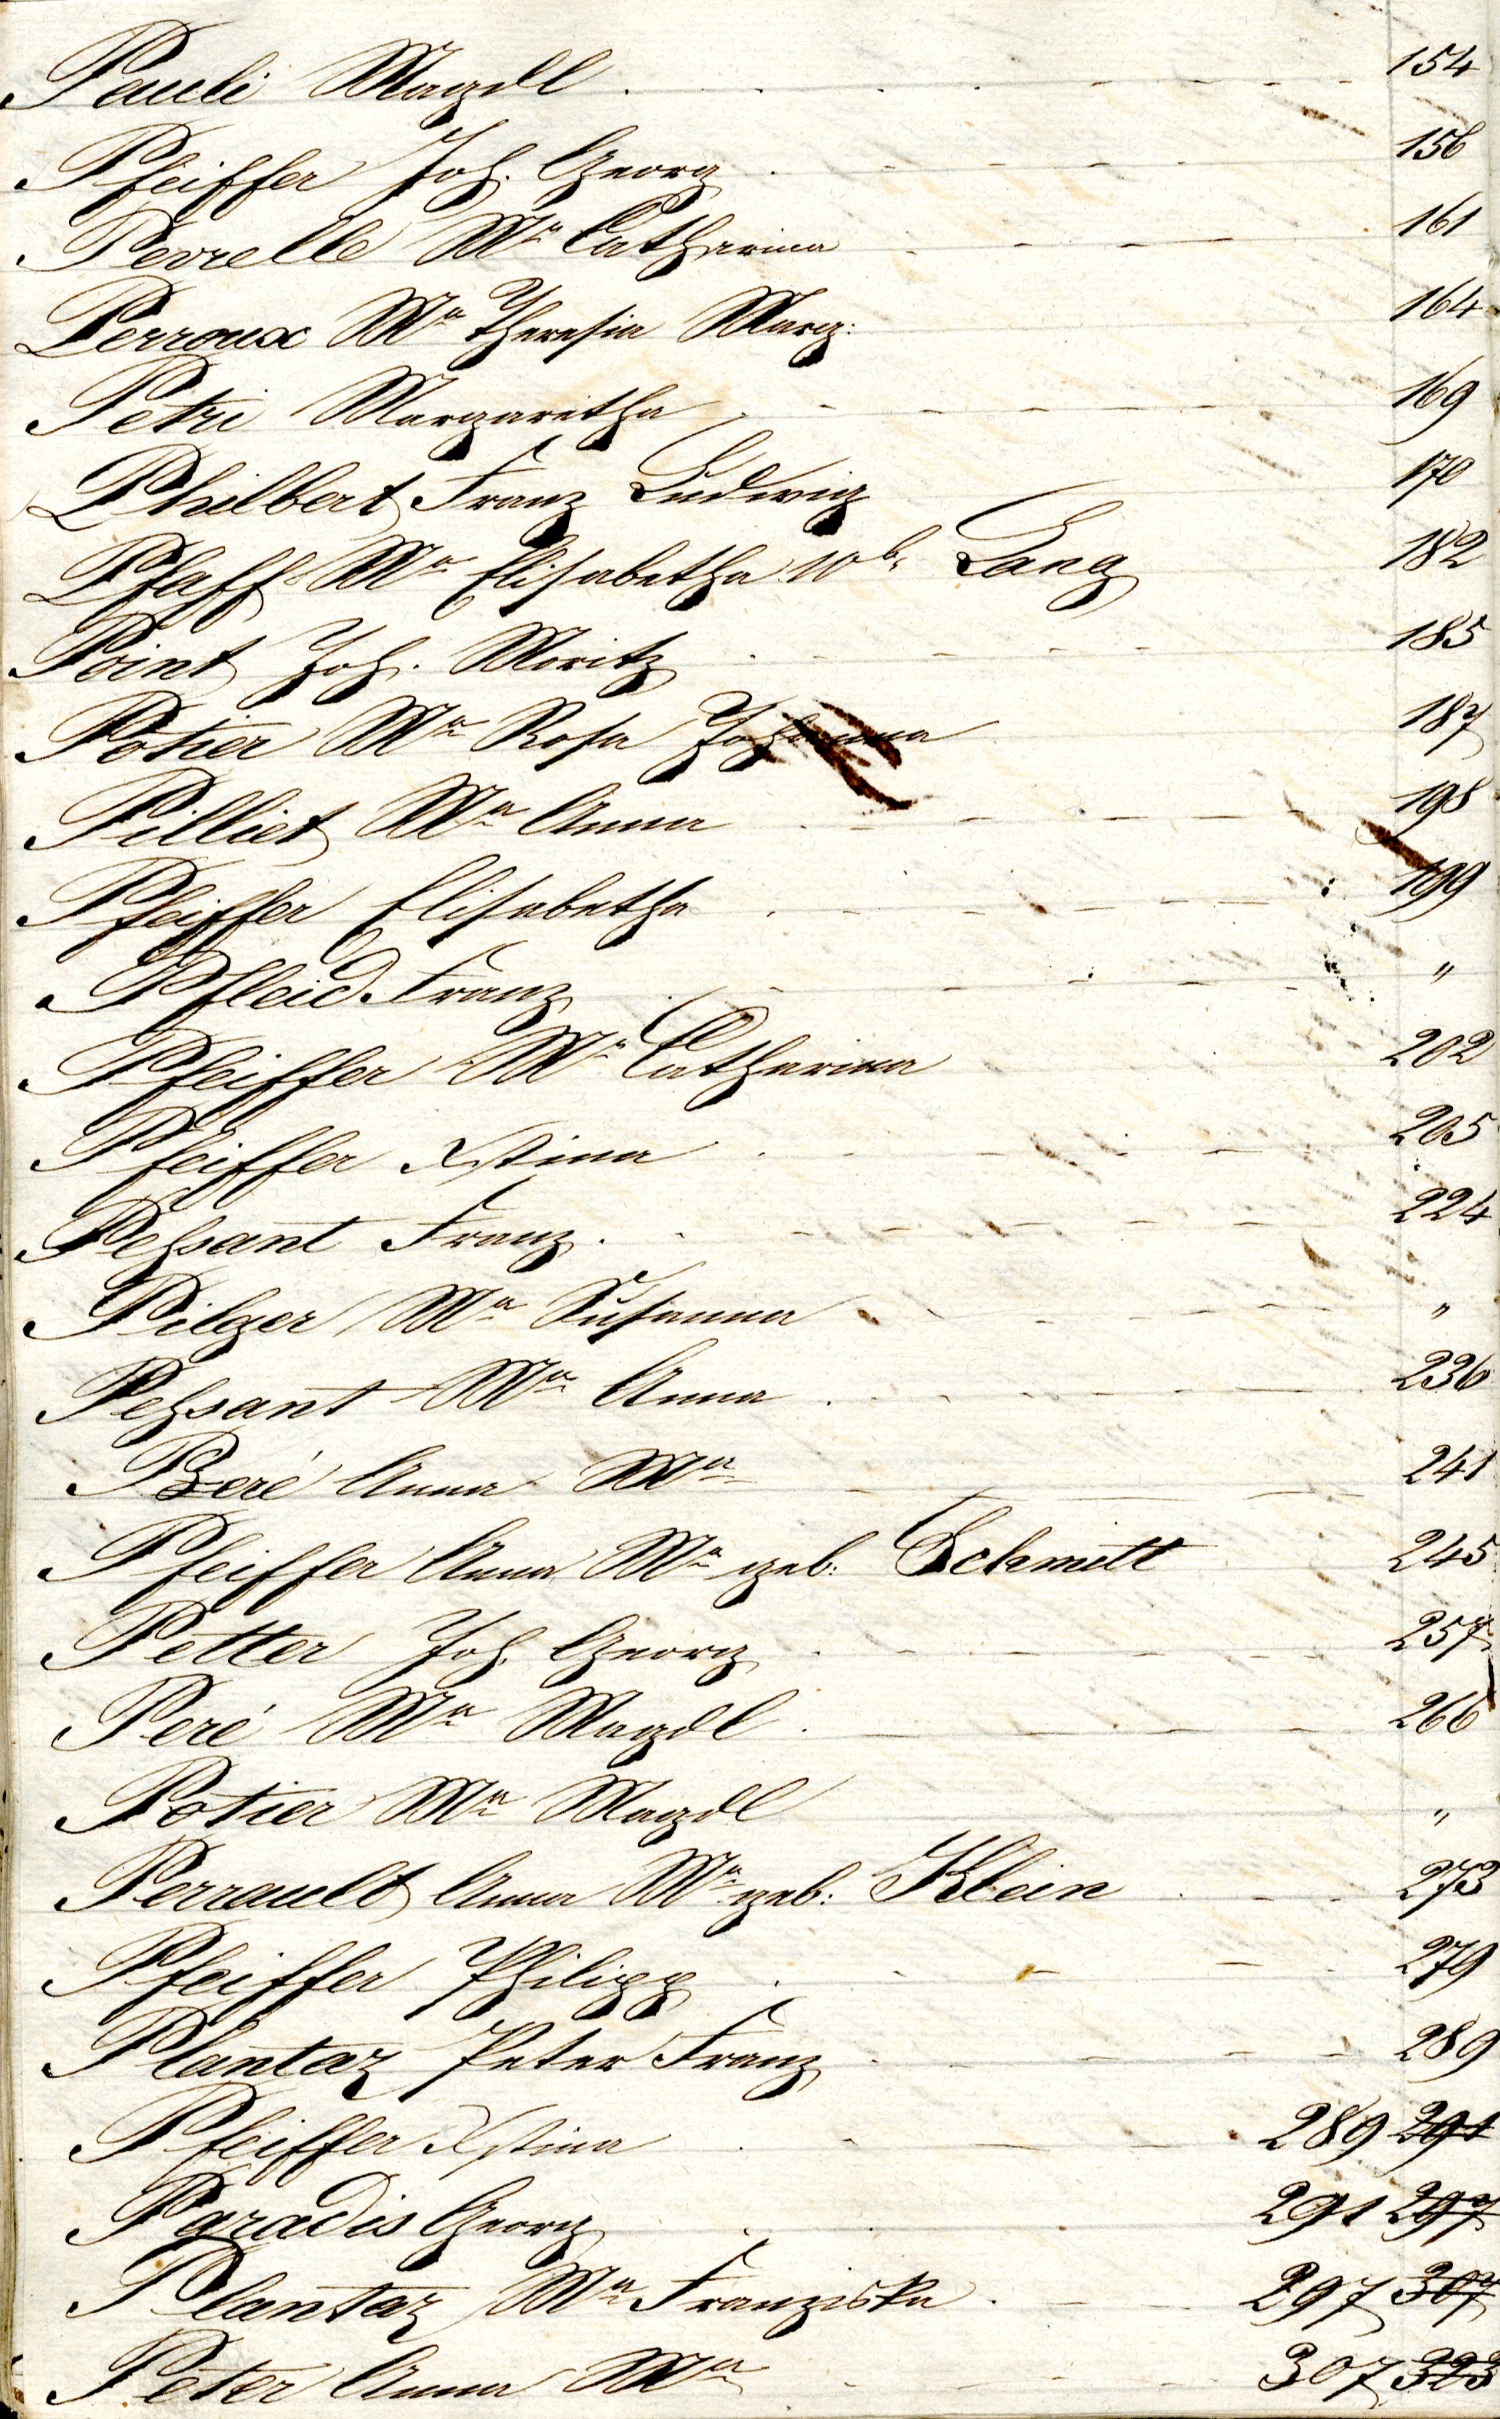 Pauli Magdl 154
Pfeiffer Joh. Georg 156
Pevrelle Ma Catharina 161
Perroux Ma Theresia Marg: 164
Petri Margaretha 169
Philbert Franz Ludwig 170
Pfaff Ma Elisabetha Wb. Lang 182
Point Joh. Moritz 185
Potier Ma Rosa Johanna 187
Pilliet Ma Anna 198
Pfeiffer Elisabetha 199
Pfleid Franz "
Pfeiffer Ma Catharina 202
Pfeiffer Xstina 205
Pehsant Franz 224
Pilger Ma Susanna "
Pehsant Ma Anna 236
Peré Anna Ma 241
Pfeiffer Anna Ma geb: Schmitt 245
Petter Joh. Georg 257
Peré Ma Magdl 266
Potier Ma Magdl "
Perrault Anna Ma geb: Klein 273
Pfeiffer Philipp 279
Plantaz Peter Franz 289
Pfeiffer Xstina 289 291
Paradis Georg 291 297
Plantaz Ma Franziska 297 307
Peter Anna Ma 307 323